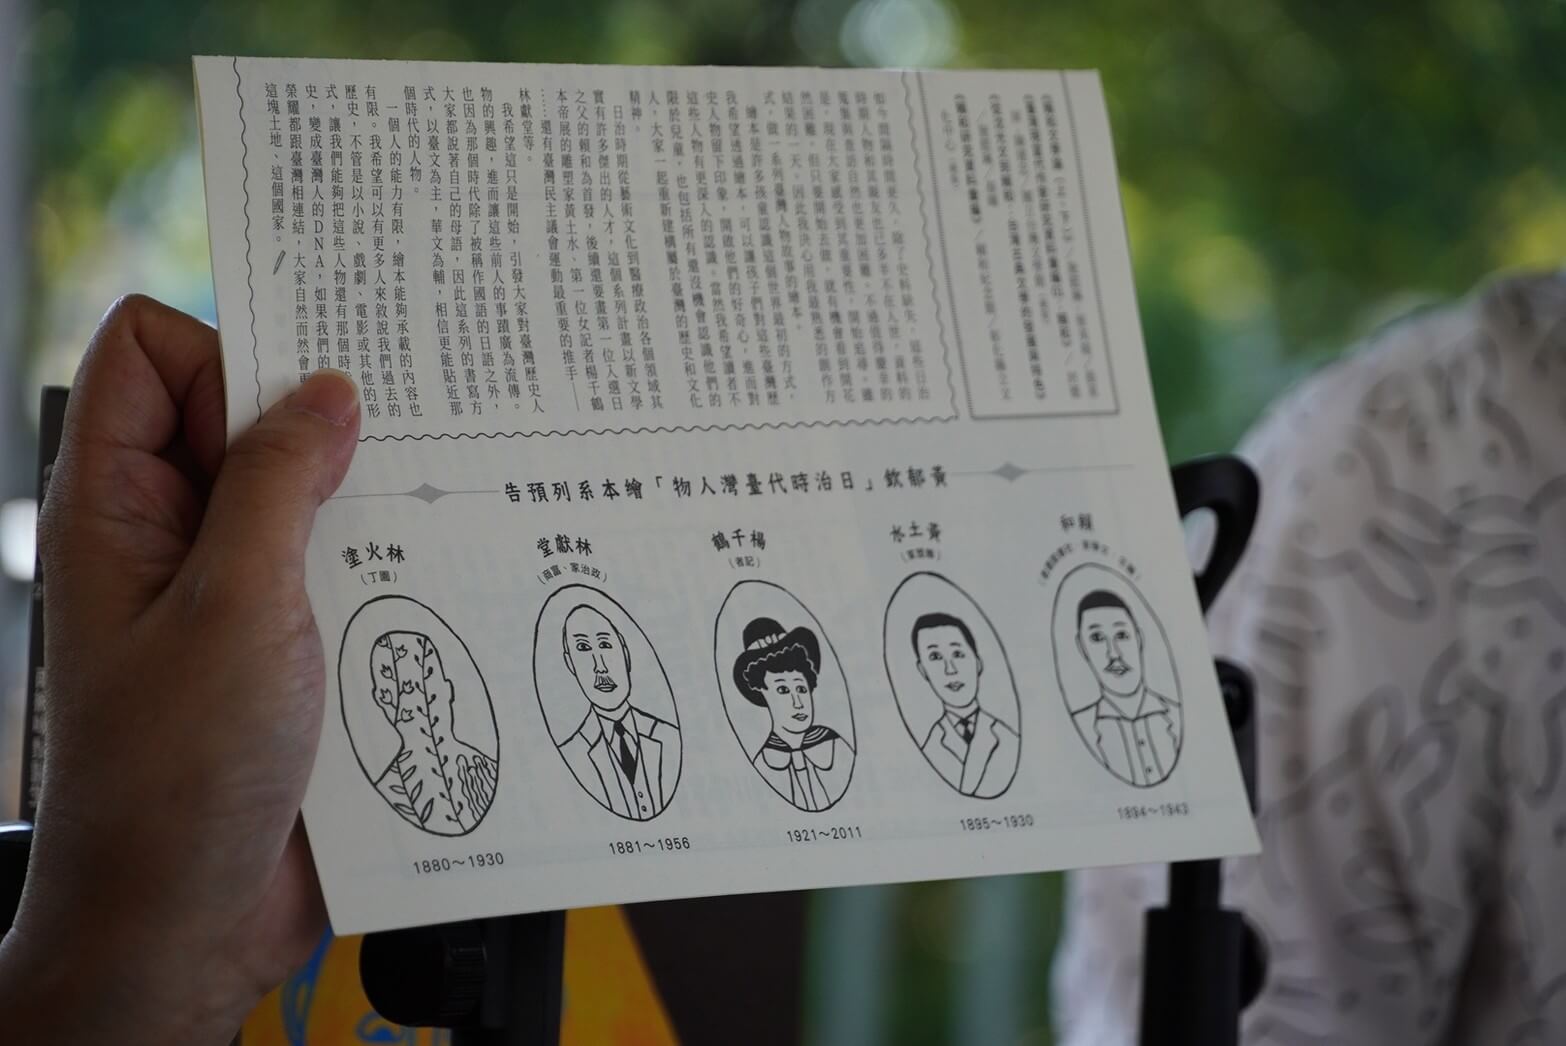 如今間隔時間更久，除了史料缺失，這些日治
時期人物和其親友也已多半不在人世，資料的
蒐集與查證自然也更加困難。不過值得慶幸的
是，現在大家感受到其重要性，開始追尋。雖
然困難，但只要開始去做，就有機會看到開花
結果的一天。因此我決心用我最熟悉的創作方
式，做一系列臺灣人物故事的繪本。
繪本是許多孩童認識這個世界最初的方式，
我希望透過繪本，可以讓孩子們對這些臺灣歷
史人物留下印象，開啟他們的好奇心，進而對
這些人物有更深入的認識。當然我希望讀者不
限於兒童，也包括所有還沒機會認識他們的
人，大家一起重新建構屬於臺灣的歷史和文化
精神。
日治時期從藝術文化到醫療政治各個領域其
實有許多傑出的人才，這個系列計畫以新文學
之父的賴和為首發，後續還要畫第一位入選日
本帝展的雕塑家黃土水、第一位女記者楊千鶴
……還有臺灣民主議會運動最重要的推手——
林獻堂等。
我希望這只是開始，引發大家對臺灣歷史人
物的興趣，進而讓這些前人的事蹟廣為流傳。
也因為那個時代除了被稱作國語的日語之外，
大家都說著自己的母語，因此這系列的書寫方
式，以臺文為主，華文為輔，相信更能貼近那
個時代的人物。
一個人的能力有限，繪本能夠承載的內容也
有限。我希望可以有更多人來敘說我們過去的
歷史，不管是以小說、戲劇、電影或其他的形
式，讓我們能夠把這些人物還有那個時
史，變成臺灣人的DNA，如果我們的
榮耀都跟臺灣相連結，大家自然而然會更
這塊土地、這個國家。
黃郁欽「日治時代臺灣人物」繪本系列預告
賴和
黃土水
（雕塑家）
楊千鶴
（記者）
林獻堂
（政治家、富商）
林火塗
（園丁）
1894～1943
1895～1930
1921～2011
1881～1956
1880～1930